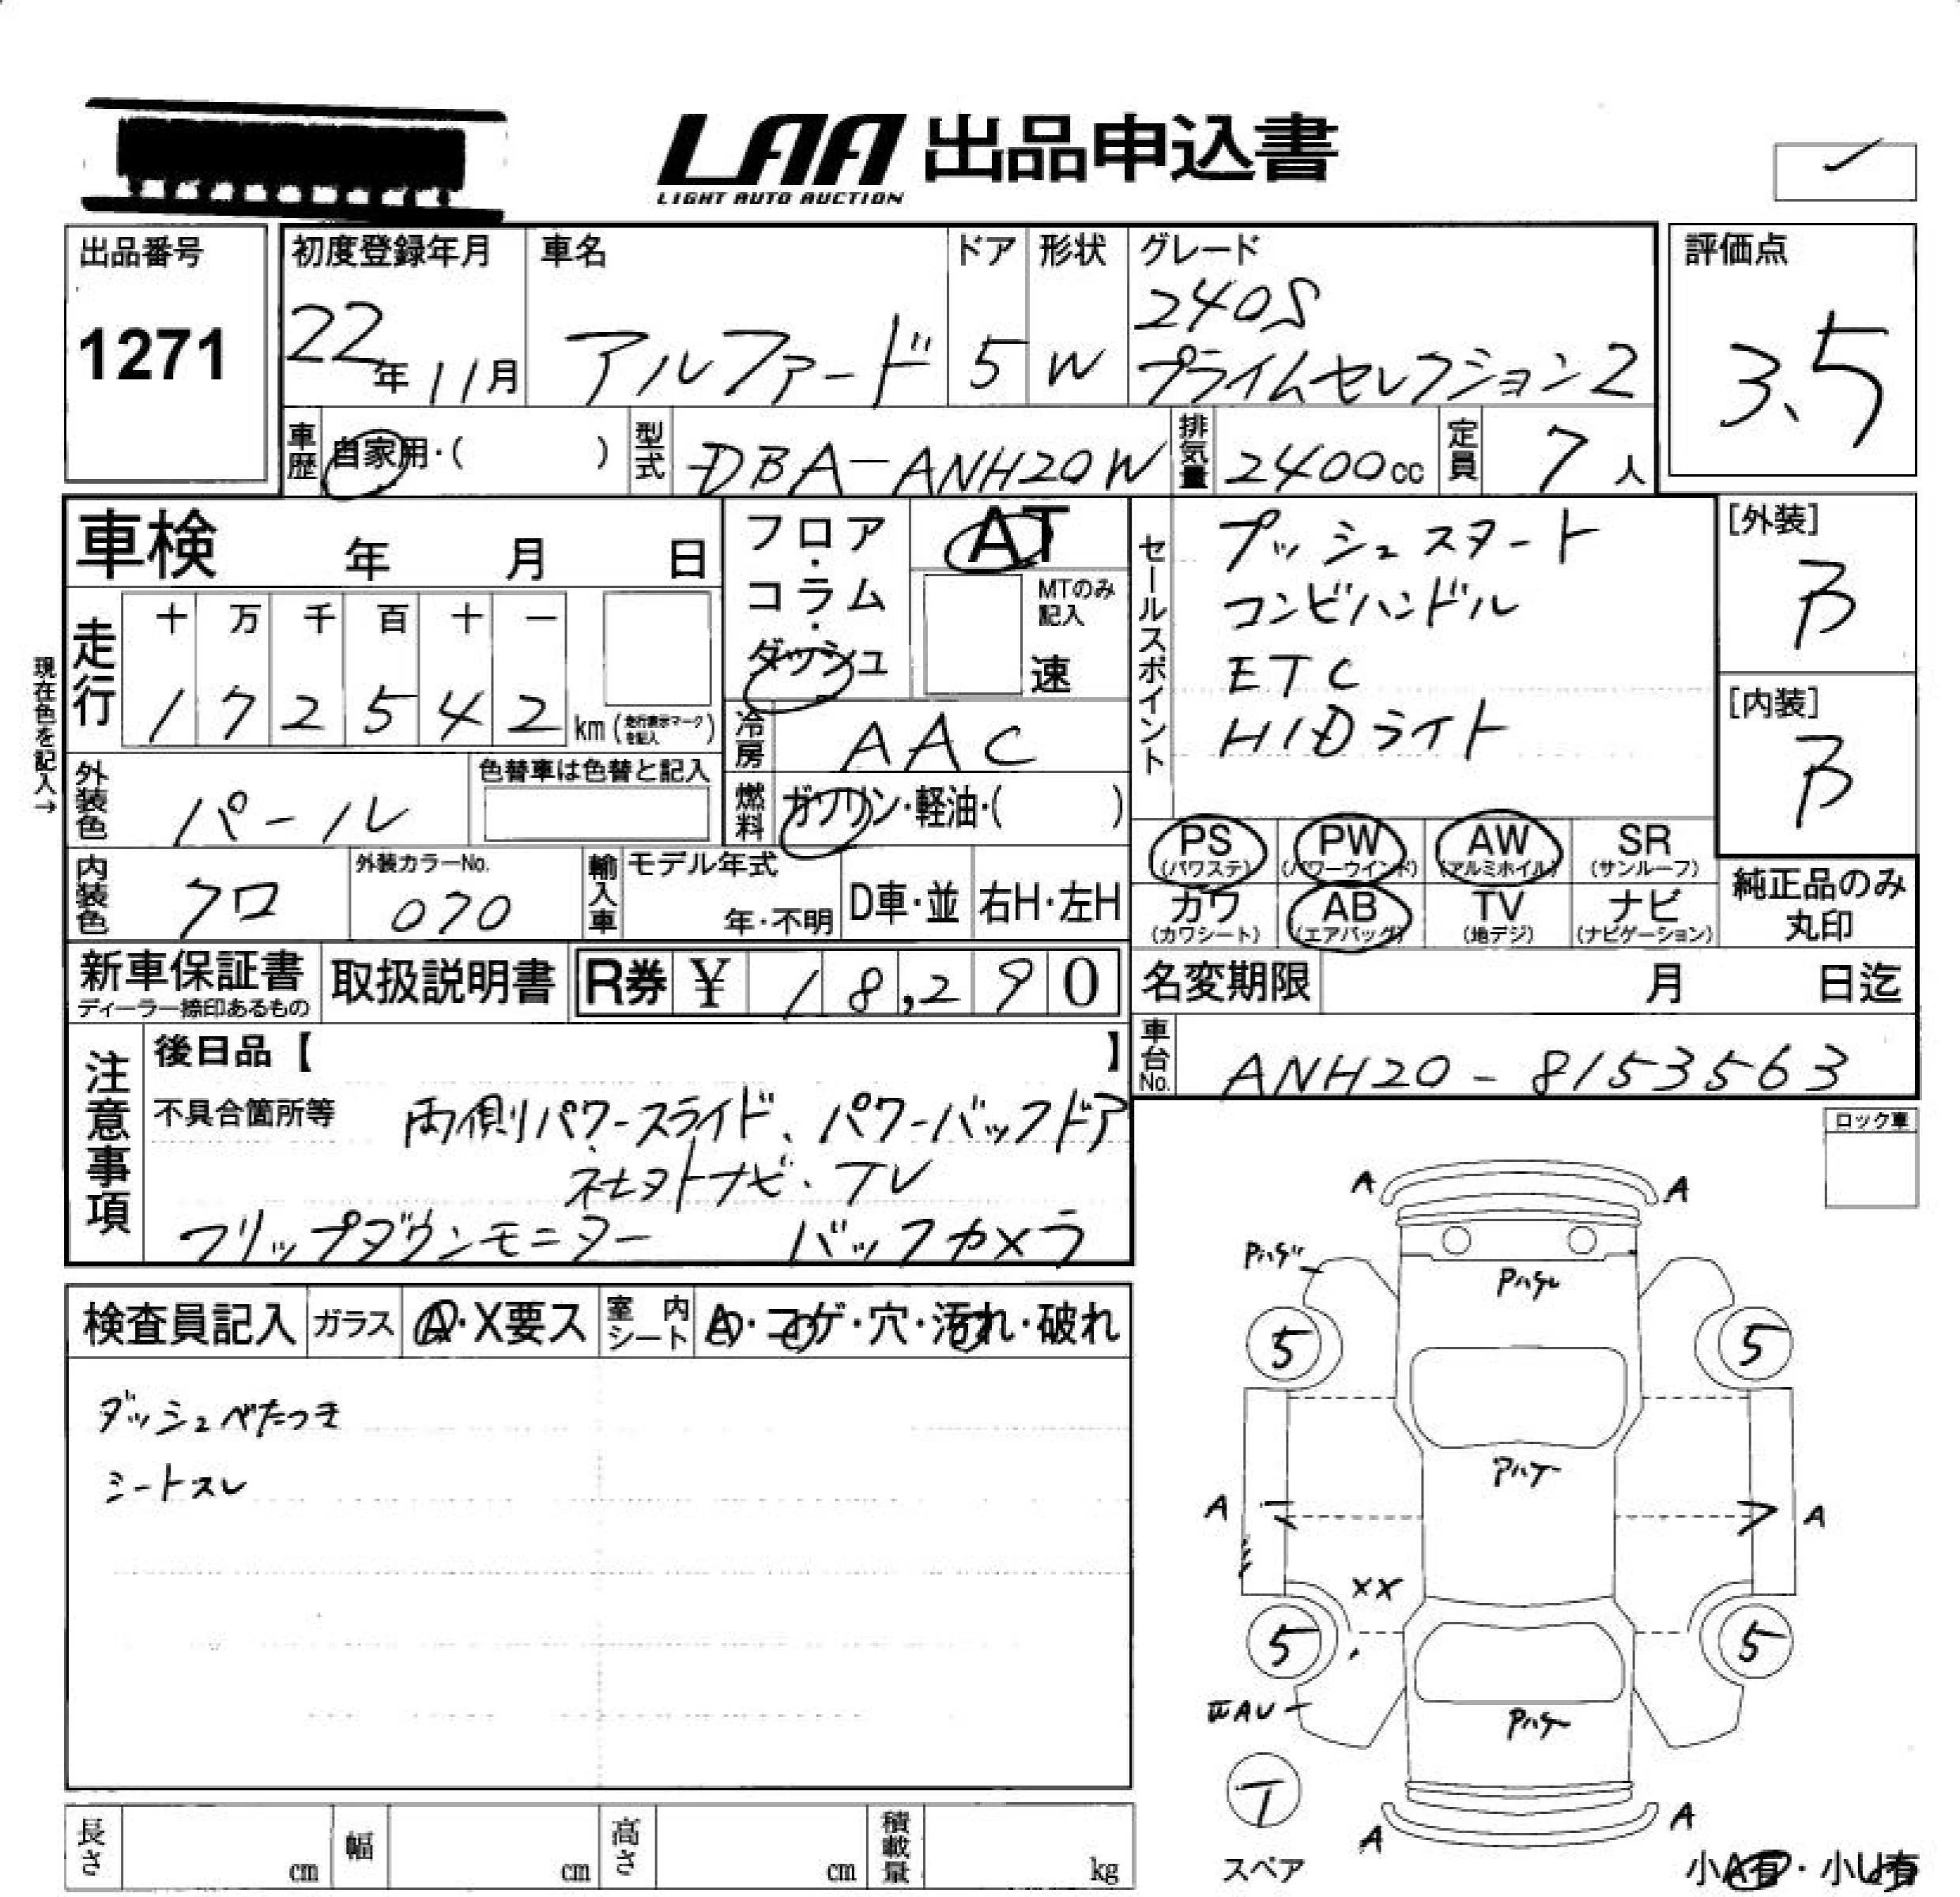 LAA 出品申込書
LIGHT AUTO AUCTION
出品番号
1271
初度登録年月
22年11月
車名
アルファード
ドア
5
形状
W
グレード
240S
プライムセレクション2
評価点
3.5
車歴
自家用・( )
型式
DBA-ANH20W
排気量
2400cc
定員
7人
車検 年 月 日
現在色を記入→
走行
十 万 千 百 十 一
1 7 2 5 4 2 km(走行表示マークを記入)
フロア・コラム・ダッシュ
AT
MTのみ記入
速
冷房
AAC
燃料
ガソリン・軽油・( )
外装色
パール
色替車は色替と記入
内装色
クロ
外装カラーNo.
070
輸入車
モデル年式
年・不明
D車・並
右H・左H
セールスポイント
プッシュスタート
コンビハンドル
ETC
HIDライト
[外装]
B
[内装]
B
PS
(パワステ)
PW
(パワーウインド)
AW
(アルミホイル)
SR
(サンルーフ)
カワ
(カワシート)
AB
(エアバック)
TV
(地デジ)
ナビ
(ナビゲーション)
純正品のみ
丸印
新車保証書
ディーラー捺印あるもの
取扱説明書
R券 ¥ 18,290
名変期限 月 日迄
車台No.
ANH20-8153563
注意事項
後日品【 】
不具合箇所等
両側パワースライド、パワーバックドア
社外ナビ・TV
フリップダウンモニター バックカメラ
ロック車
検査員記入
ガラス
A・X要ス
室内シート
A・コゲ・穴・汚れ・破れ
ダッシュべたつき
シートスレ
A A
Pハゲ
Pハゲ
5 5
Pハゲ
A A
XX
5 5
Pハゲ
T
スペア
A A
小A有・小U有
長さ cm
幅 cm
高さ cm
積載量 kg